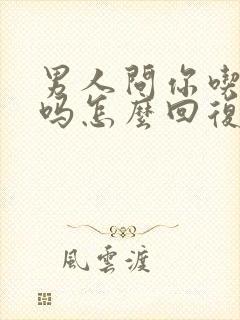 男人問你喫
吗怎麼回復
風雲渡